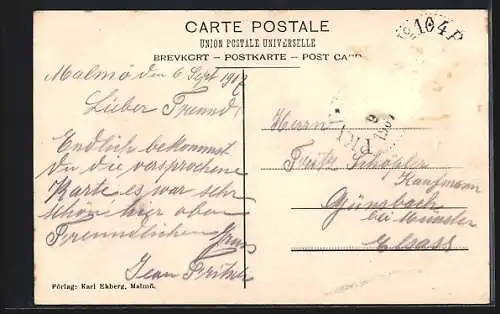 CARTE POSTALE
UNION POSTALE UNIVERSELLE
BREVKORT – POSTKARTE – POST CARD
104 P
Malmö den 6 Sept
Lieber Freund,
Endlich bekommst
du die vasprochene
Karte es war sehr
schöne hier oben
Freundlichen Gruss
Jean
Herrn
Fritz Schöpfer
Kaufmann
Günsbach
bei Münster
Elsass
Förlag: Karl Ekberg, Malmö.